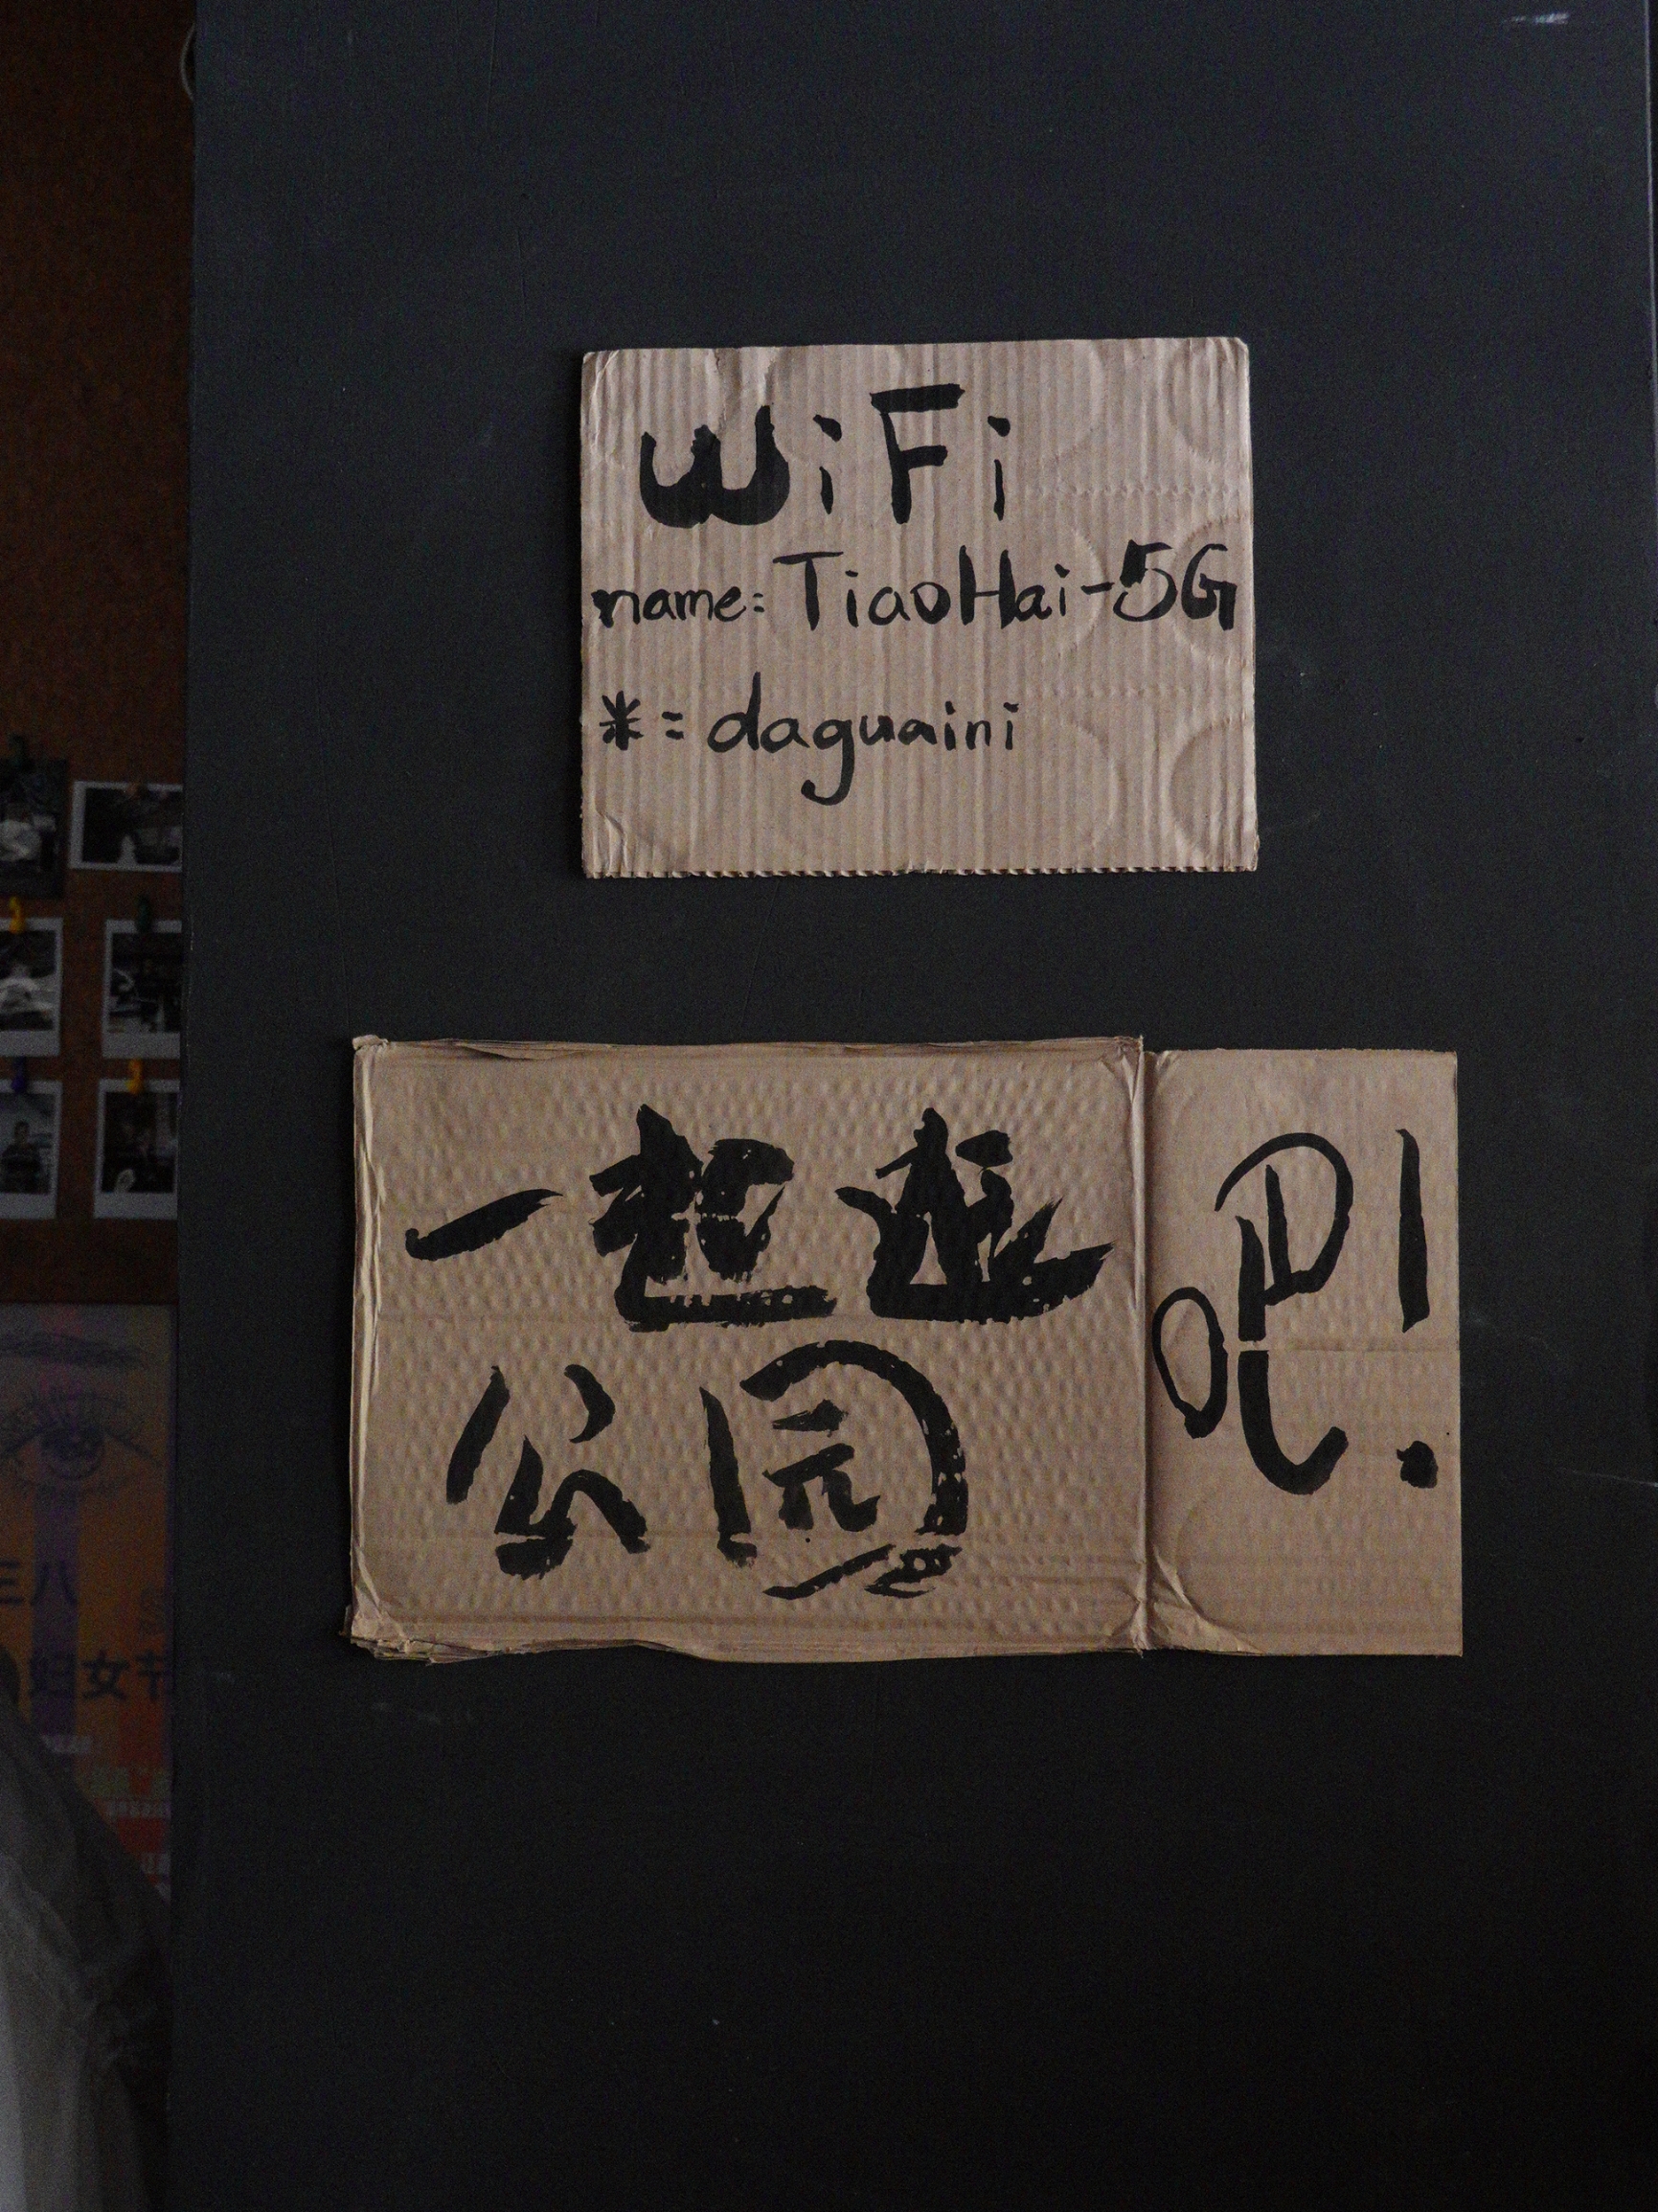 WiFi
name: TiaoHai-5G
*= daguaini
一起逛
公园
吧!
三八
妇女节